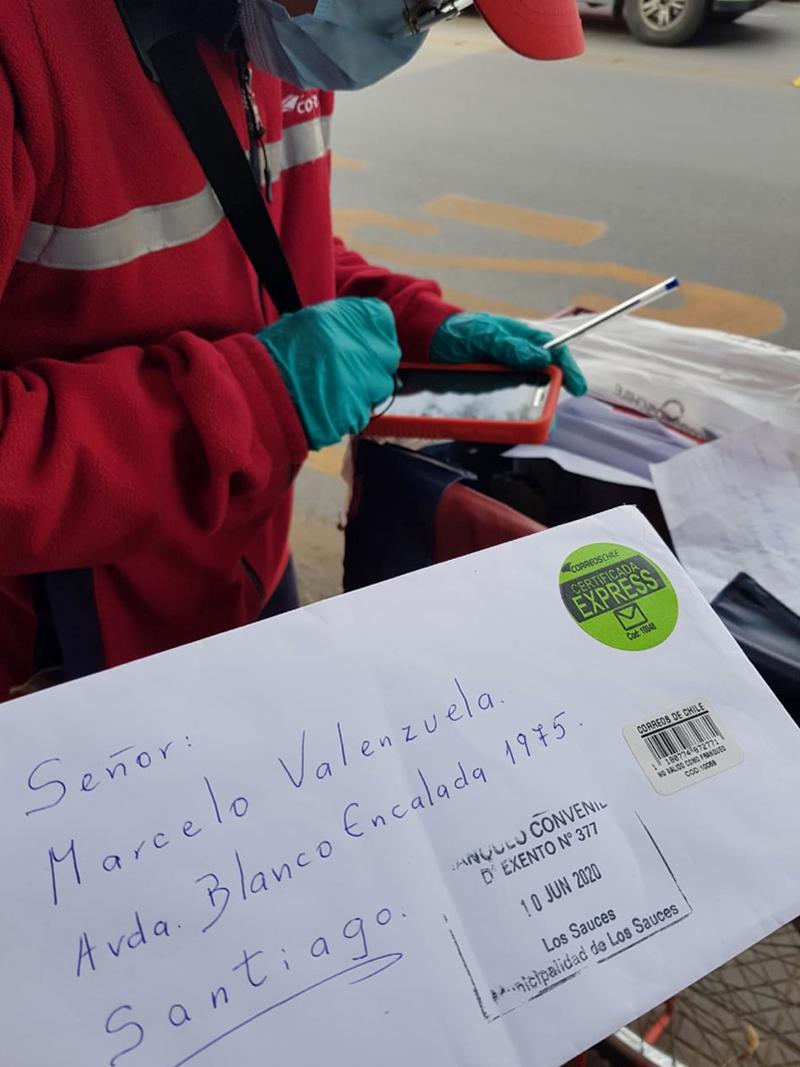 CORREOSCHILE
CERTIFICADA
EXPRESS
Cod: 10048
CORREOS DE CHILE
NO VALIDO COMO FRANQUEO
COD:10088
Señor:
Marcelo Valenzuela.
Avda. Blanco Encalada 1975.
Santiago.
CONVENI
D° EXENTO N° 377
10 JUN 2020
Los Sauces
Municipalidad de Los Sauces